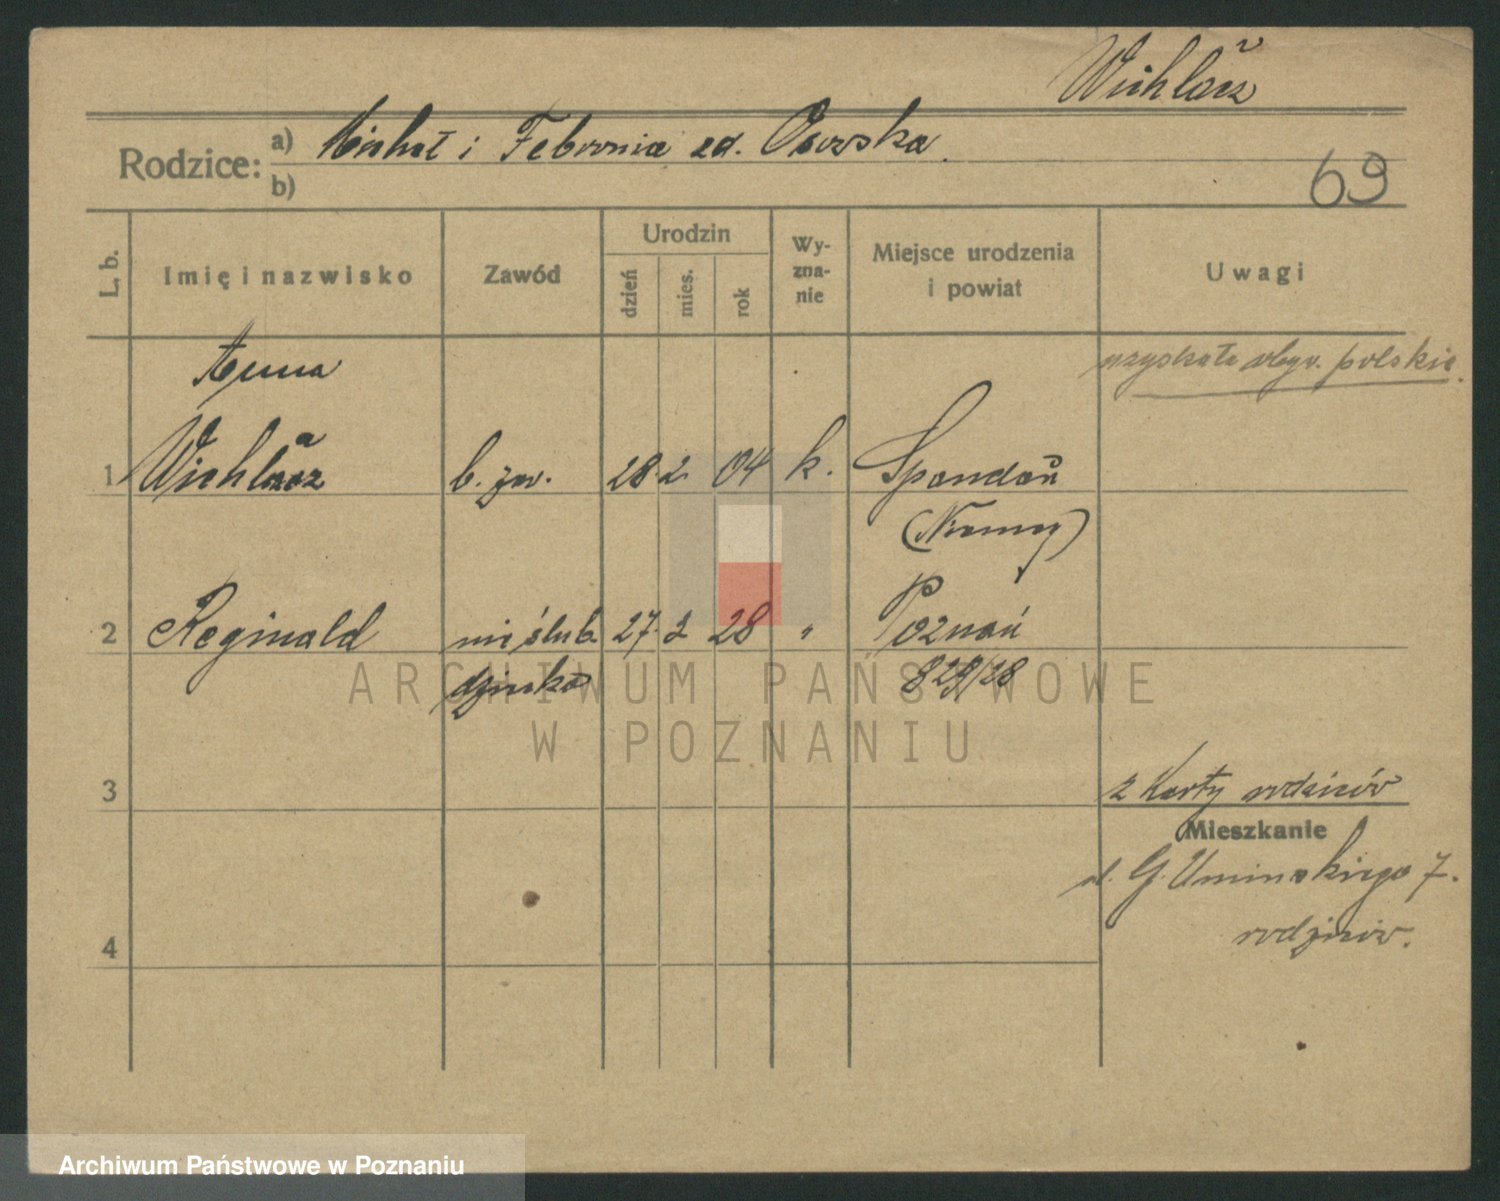 Wichlacz
Rodzice: a) Michał i Febronia zd. Osorska.
b)
69
L. b. Imię i nazwisko Zawód Urodzin dzień mies. rok Wy-zna-nie Miejsce urodzenia i powiat Uwagi
Anna uzyskała obyw. polskie.
1 Wichlacz b. zaw. 28. 2. 04 k. Spandau
(Niemcy)
2 Reginald nieślub. 27. 2 28 " Poznań
dziecko 829/28
3 z Karty rodziców
Mieszkanie
ul. G. Umińskiego 7.
rodziców.
4
ARCHIWUM PAŃSTWOWE
W POZNANIU
Archiwum Państwowe w Poznaniu